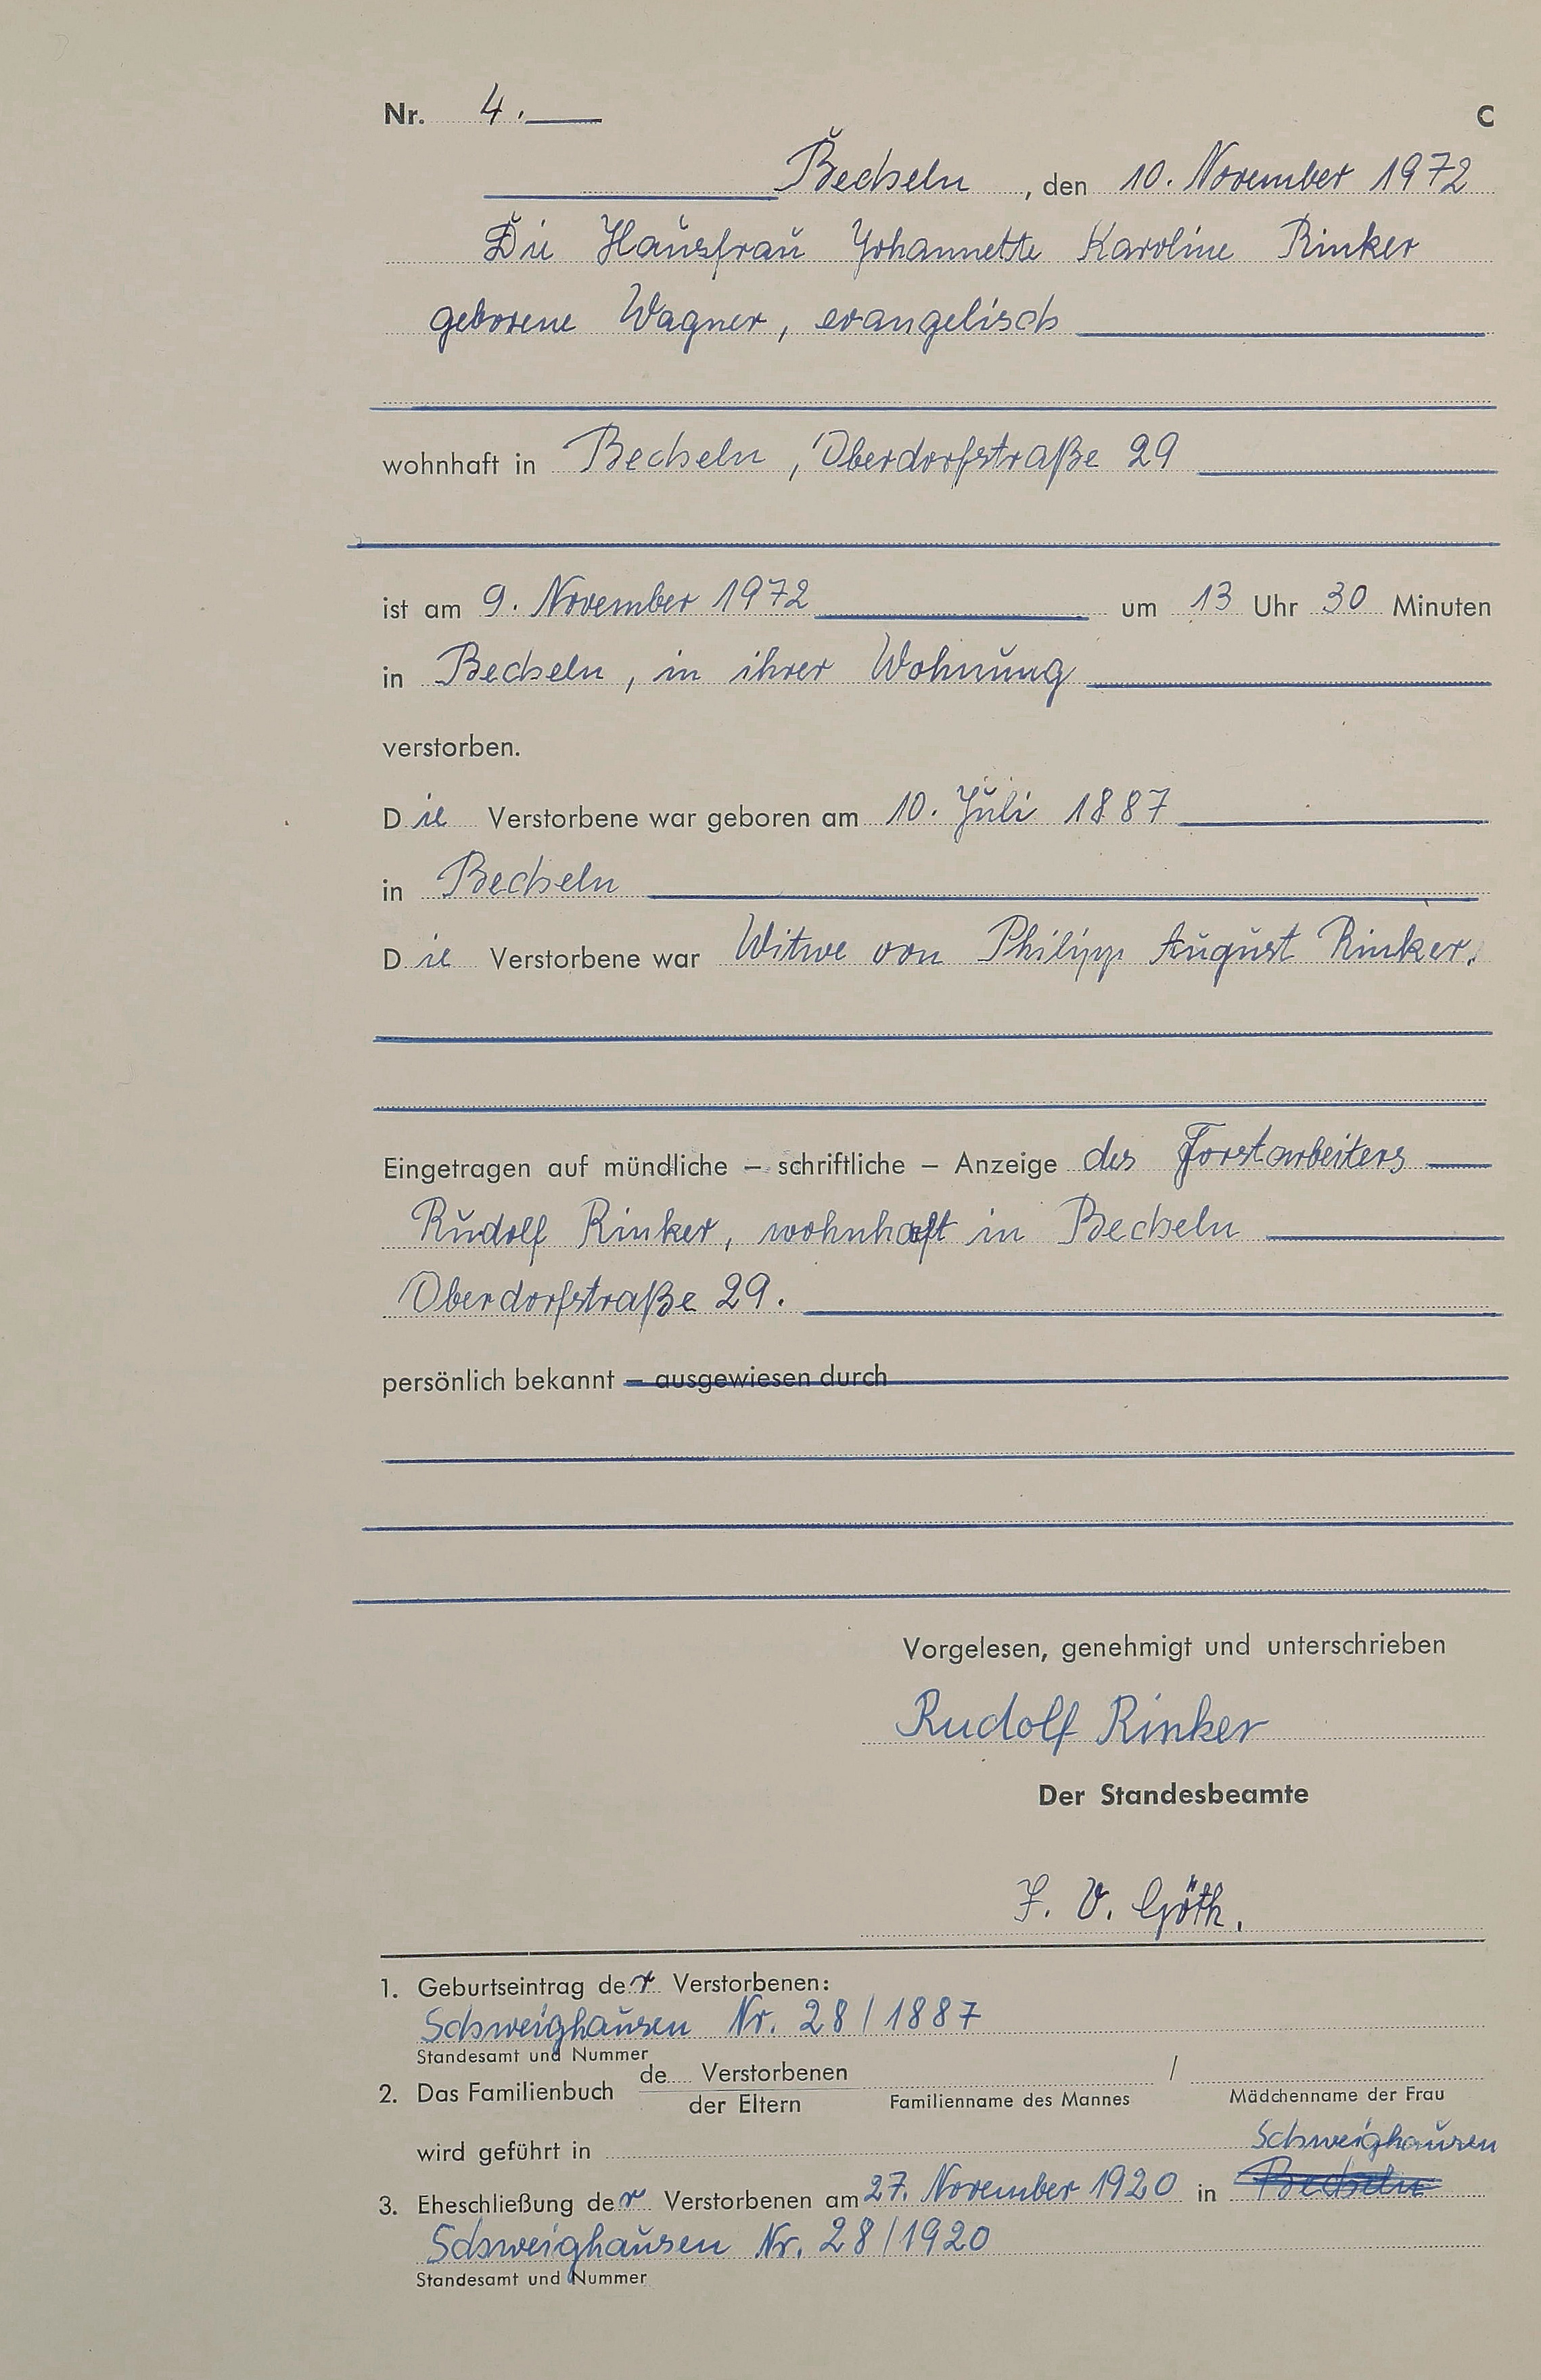 Nr. 4. C
Becheln, den 10. November 1972
Die Hausfrau Johannette Karoline Rinker
geborene Wagner, evangelisch
wohnhaft in Becheln, Oberdorfstraße 29
ist am 9. November 1972 um 13 Uhr 30 Minuten
in Becheln, in ihrer Wohnung
verstorben.
Die Verstorbene war geboren am 10. Juli 1887
in Becheln
Die Verstorbene war Witwe von Philipp August Rinker.
Eingetragen auf mündliche – schriftliche – Anzeige des Forstarbeiters
Rudolf Rinker, wohnhaft in Becheln
Oberdorfstraße 29.
persönlich bekannt – ausgewiesen durch
Vorgelesen, genehmigt und unterschrieben
Rudolf Rinker
Der Standesbeamte
J. V. Göth.
1. Geburtseintrag der Verstorbenen:
Schweighausen Nr. 28/1887
Standesamt und Nummer
2. Das Familienbuch de Verstorbenen /
der Eltern Familienname des Mannes Mädchenname der Frau
wird geführt in
Schweighausen
3. Eheschließung der Verstorbenen am 27. November 1920 in Becheln
Schweighausen Nr. 28/1920
Standesamt und Nummer